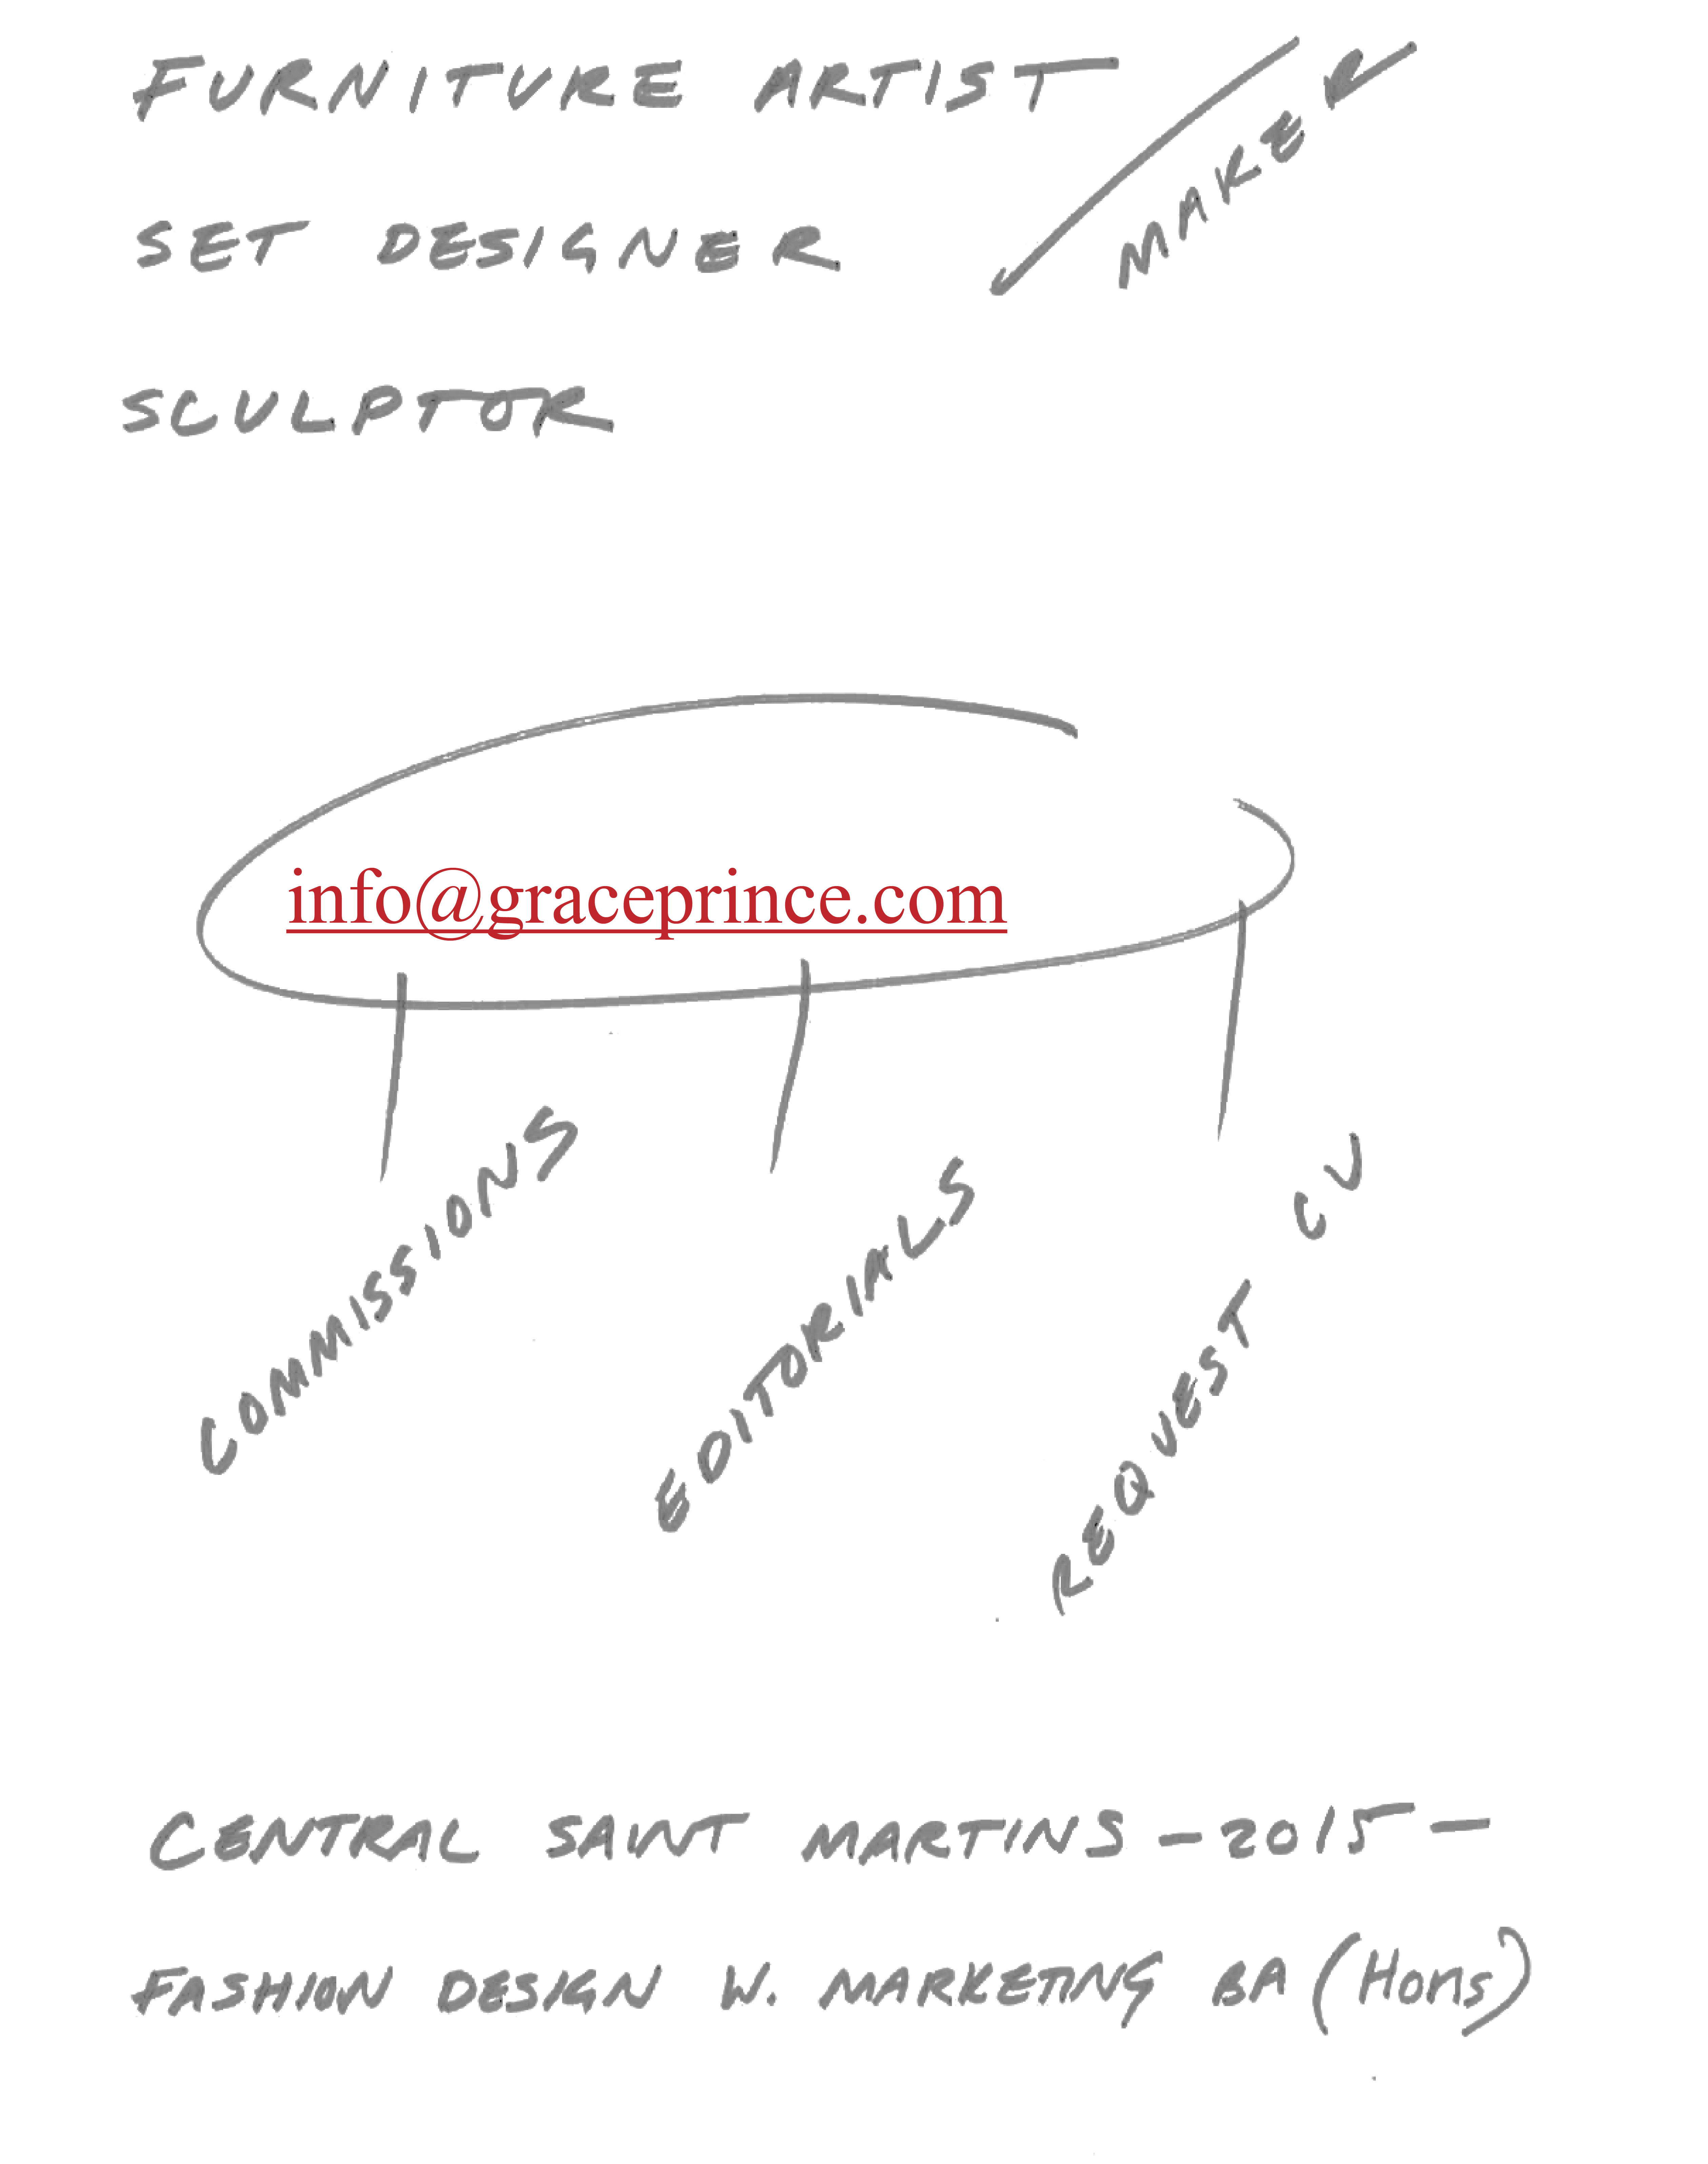 FURNITURE ARTIST / MAKER
SET DESIGNER
SCULPTOR
info@graceprince.com
COMMISSIONS
EDITORIALS
REQUEST CV
CENTRAL SAINT MARTINS - 2015 -
FASHION DESIGN W. MARKETING BA (Hons)